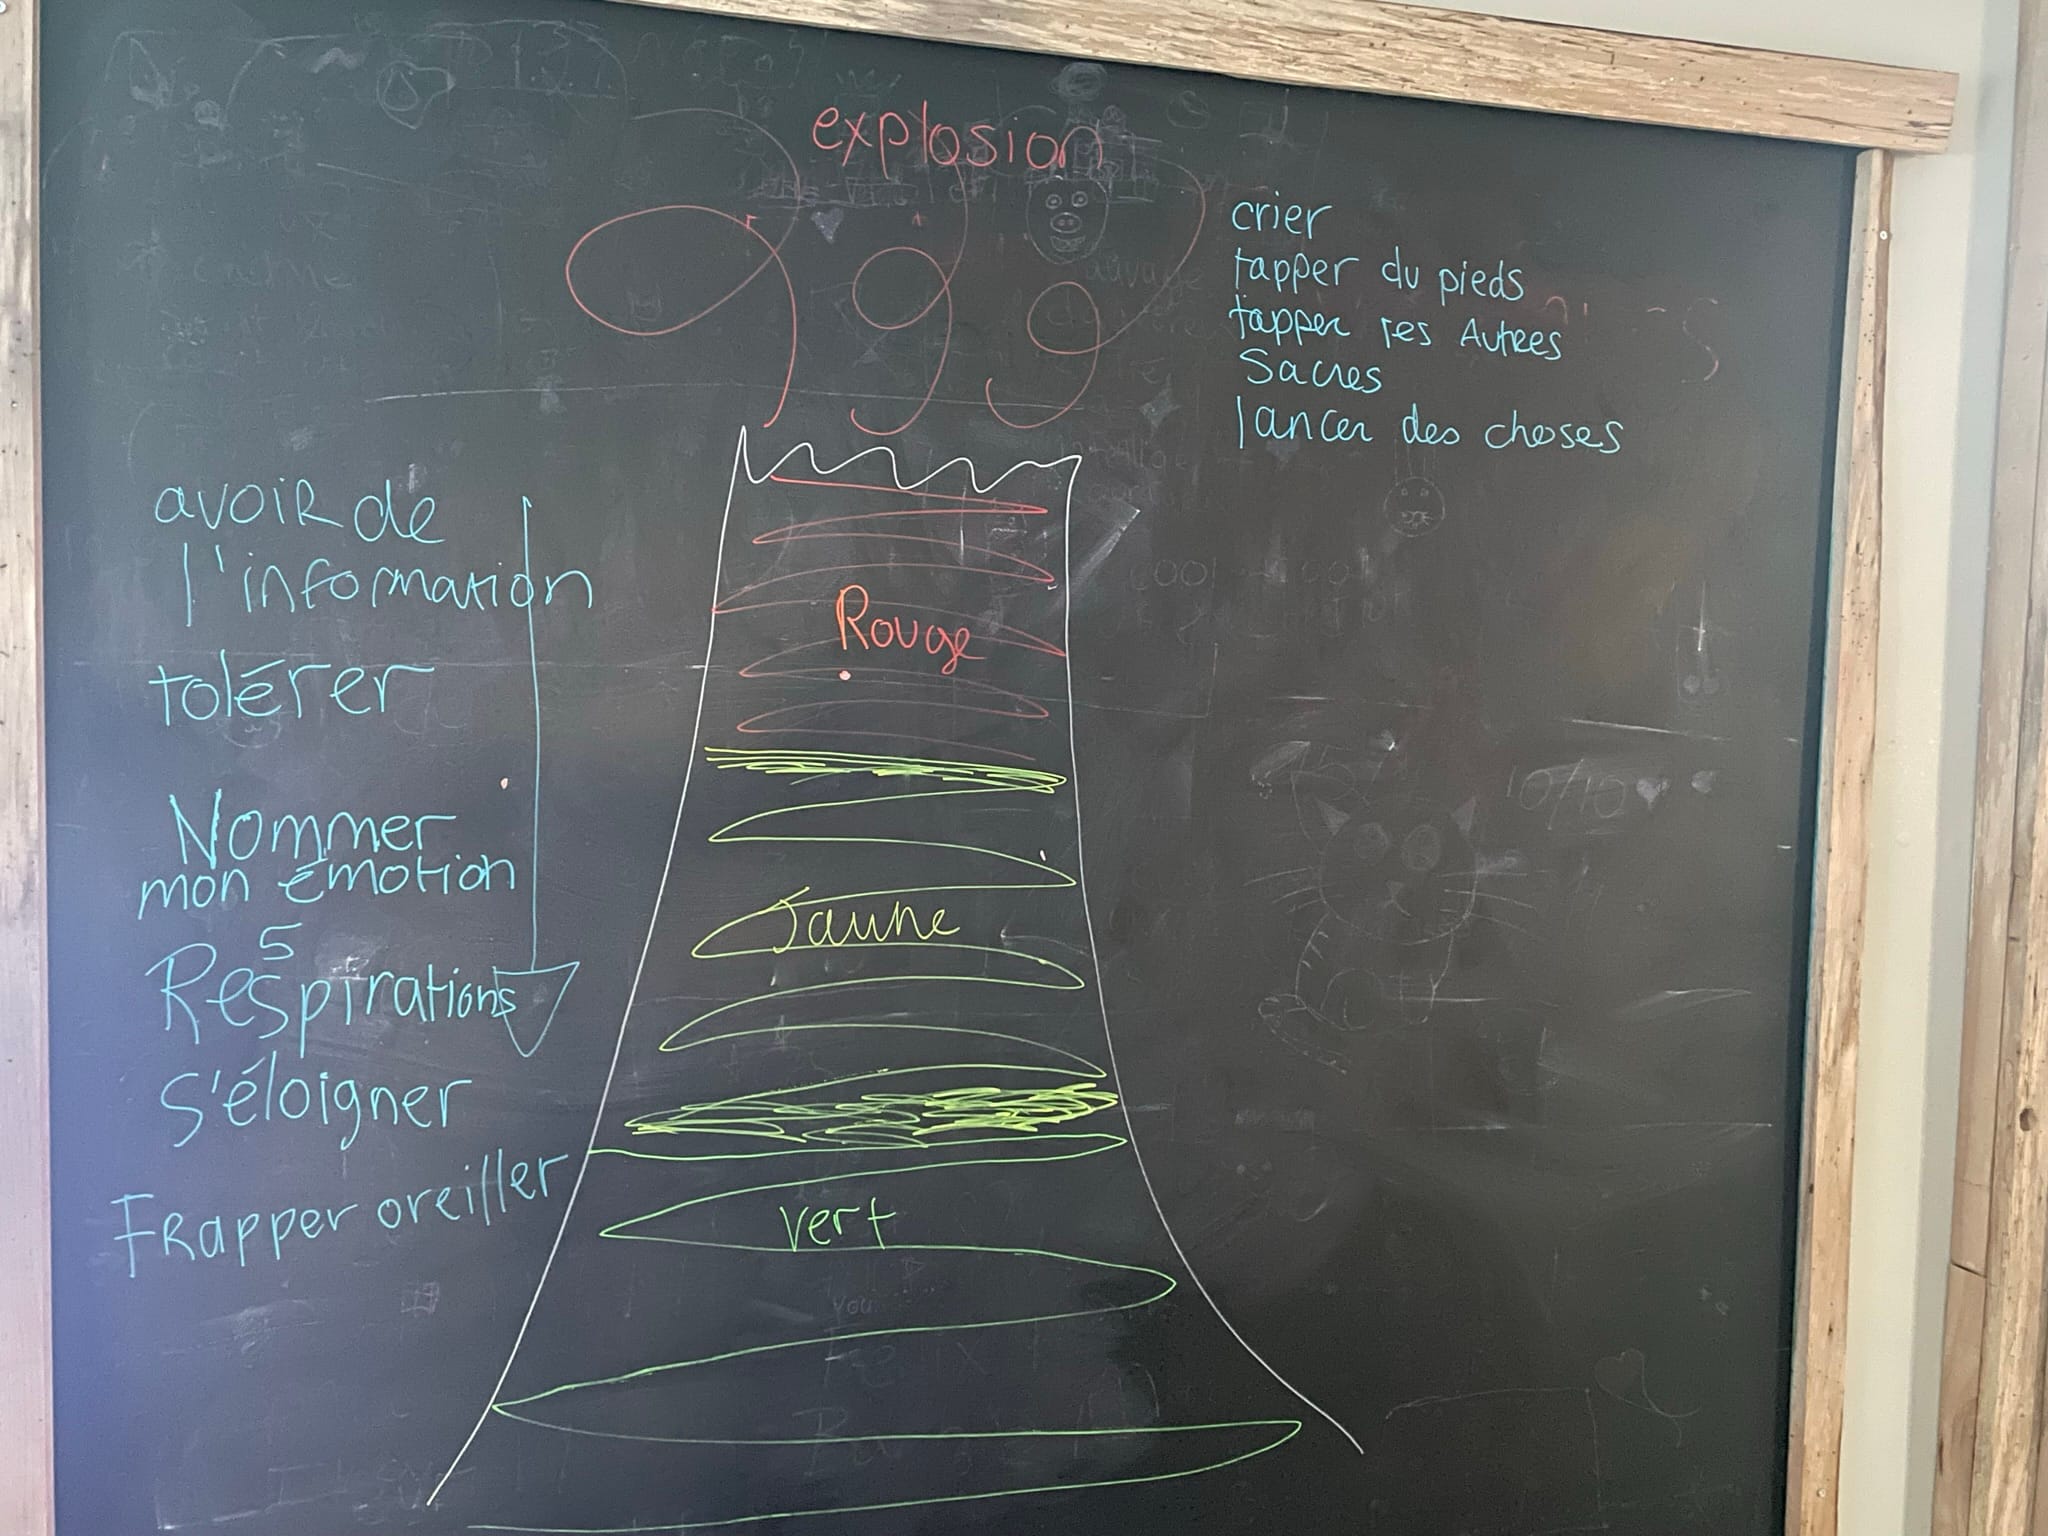 explosion
crier
tapper du pieds
tapper les Autres
Sacres
lancer des choses
avoir de
l'information
tolérer
Nommer
mon émotion
5
Respirations
s'éloigner
Frapper oreiller
Rouge
Jaune
vert
10/10